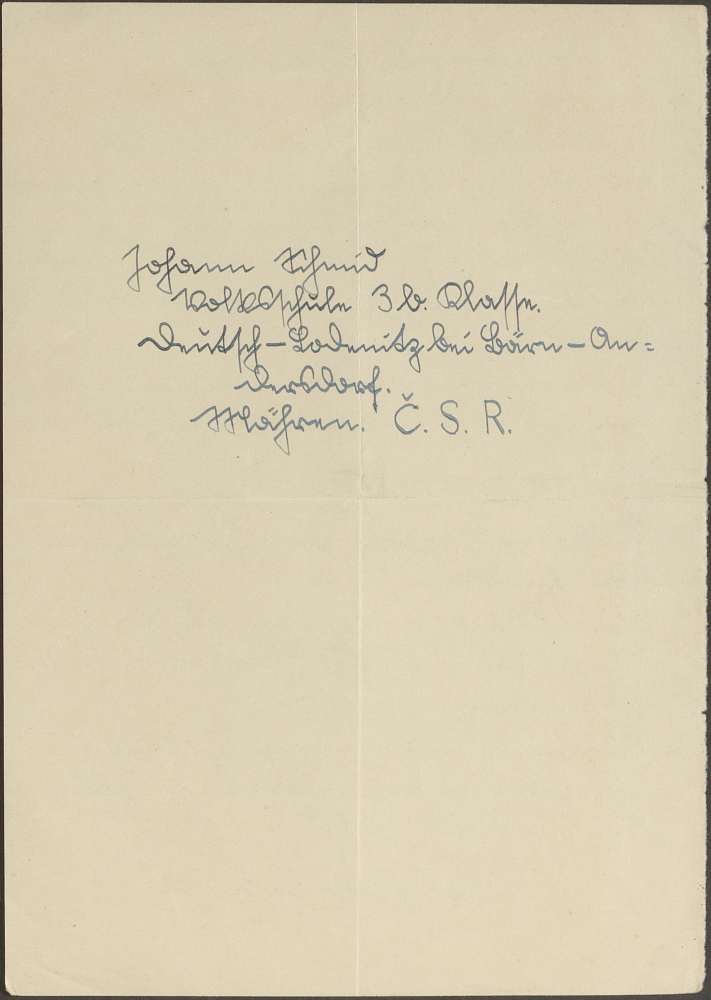 Johann Schmid
Volksschule 3 b. Klasse.
Deutsch-Lodenitz bei Bärn-An=
dersdorf.
Mähren. Č. S. R.